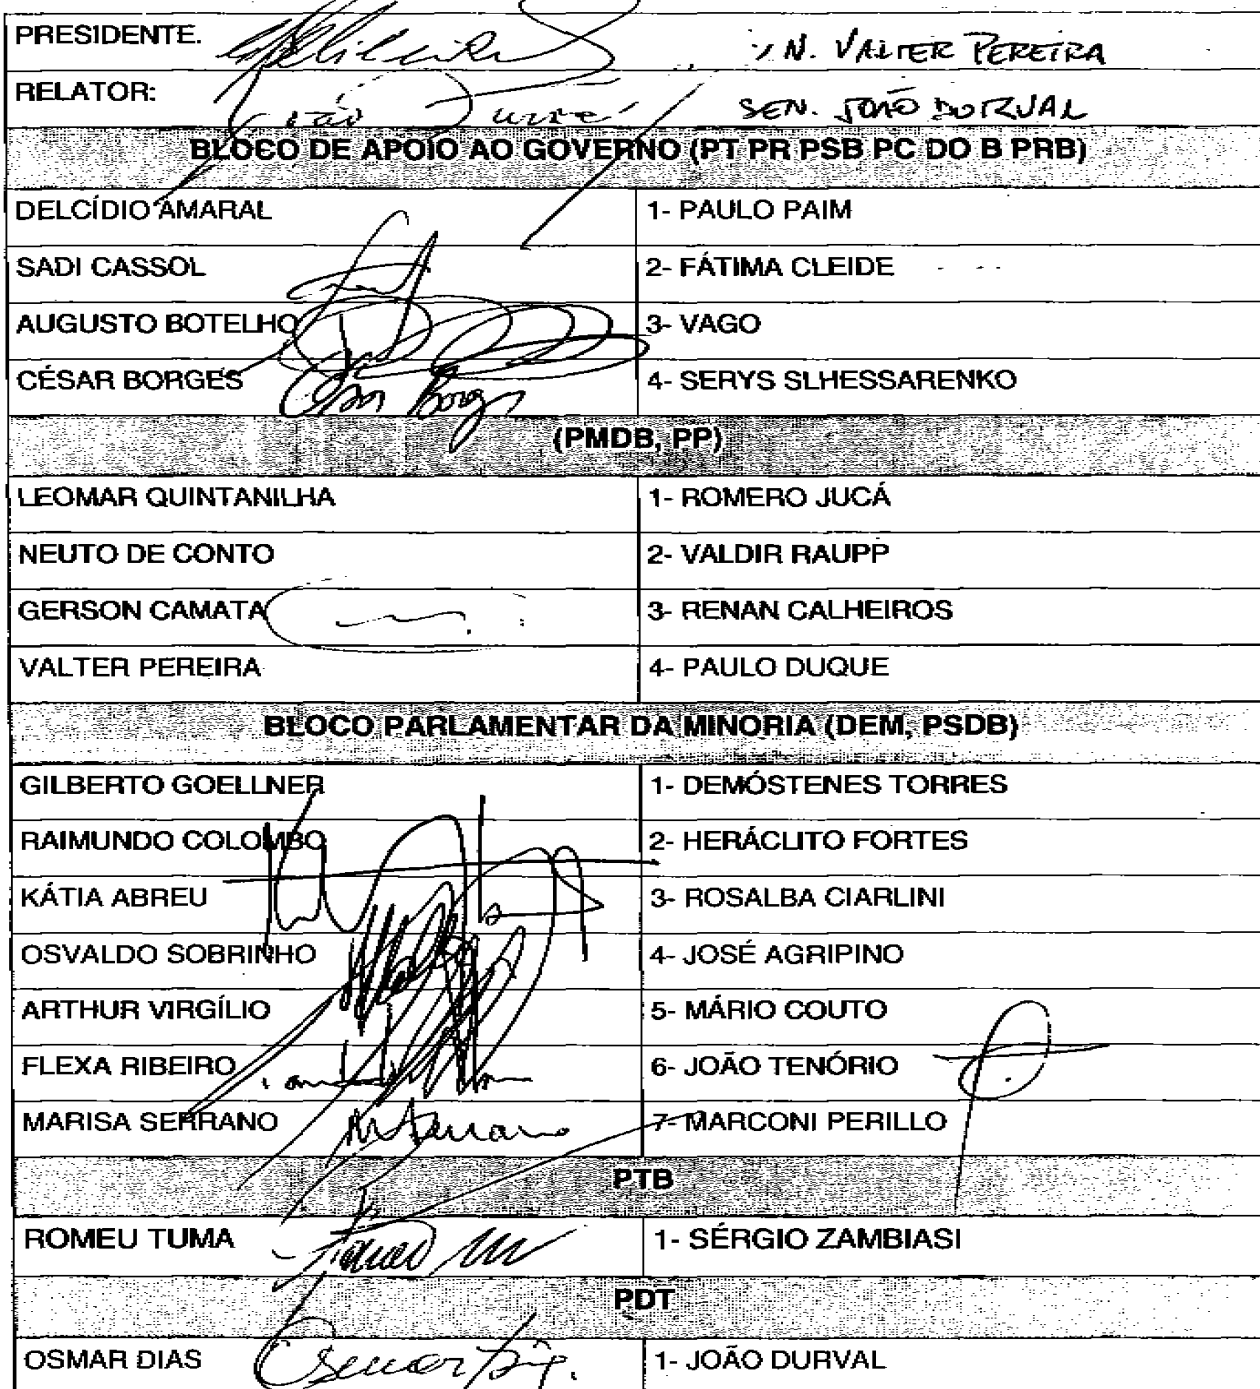 PRESIDENTE. N. VALTER PEREIRA
RELATOR: SEN. JOÃO DURVAL
BLOCO DE APOIO AO GOVERNO (PT PR PSB PC DO B PRB)
DELCÍDIO AMARAL 1- PAULO PAIM
SADI CASSOL 2- FÁTIMA CLEIDE
AUGUSTO BOTELHO 3- VAGO
CÉSAR BORGES 4- SERYS SLHESSARENKO
(PMDB, PP)
LEOMAR QUINTANILHA 1- ROMERO JUCÁ
NEUTO DE CONTO 2- VALDIR RAUPP
GERSON CAMATA 3- RENAN CALHEIROS
VALTER PEREIRA 4- PAULO DUQUE
BLOCO PARLAMENTAR DA MINORIA (DEM, PSDB)
GILBERTO GOELLNER 1- DEMÓSTENES TORRES
RAIMUNDO COLOMBO 2- HERÁCLITO FORTES
KÁTIA ABREU 3- ROSALBA CIARLINI
OSVALDO SOBRINHO 4- JOSÉ AGRIPINO
ARTHUR VIRGÍLIO 5- MÁRIO COUTO
FLEXA RIBEIRO 6- JOÃO TENÓRIO
MARISA SERRANO 7- MARCONI PERILLO
PTB
ROMEU TUMA 1- SÉRGIO ZAMBIASI
PDT
OSMAR DIAS Osmar Dias. 1- JOÃO DURVAL